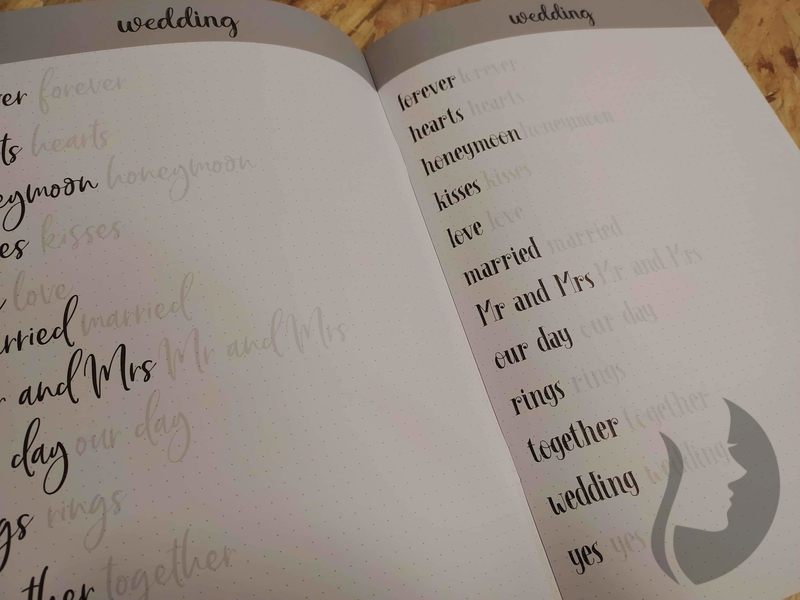 wedding
er forever
ts hearts
eymoon honeymoon
es kisses
love
rried married
and Mrs Mr and Mrs
day our day
gs rings
ther together
wedding
forever forever
hearts hearts
honeymoon honeymoon
kisses kisses
love love
married married
Mr and Mrs Mr and Mrs
our day our day
rings rings
together together
wedding wedding
yes yes